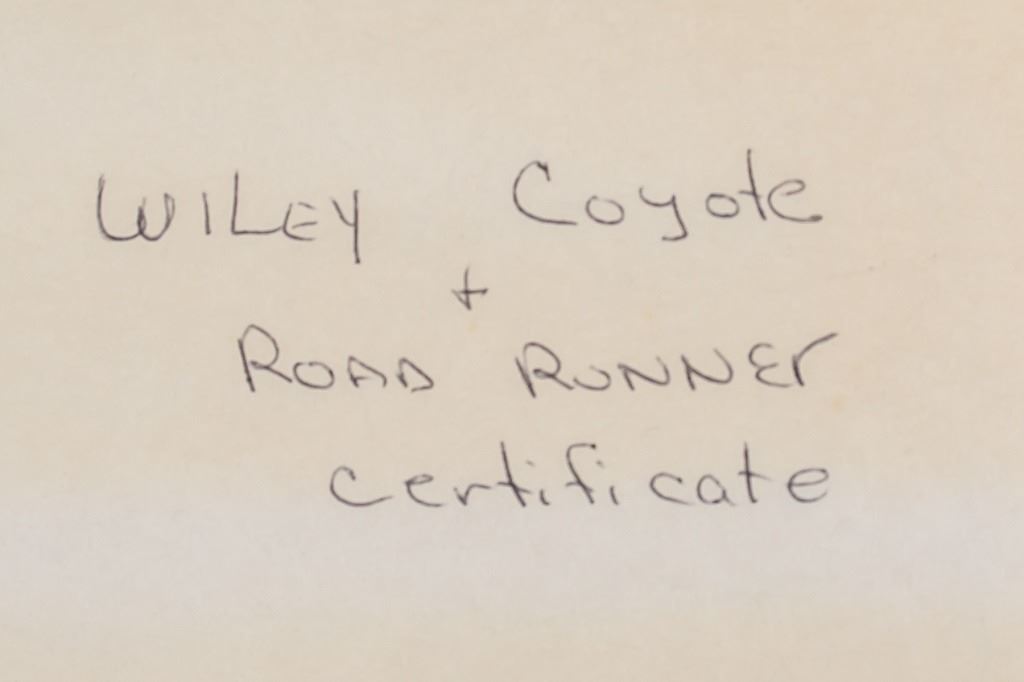 WILEY Coyote
+
ROAD RUNNER
certificate